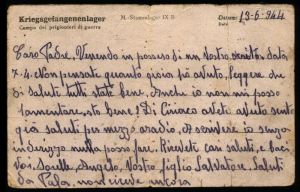 Kriegsgefangenenlager
Campo dei prigionieri di guerra
M.-Stammlager IX B
Datum: 13-6-944
Data
Caro Padre, Venendo in possesso di un vostro scritto data
7-4. Non pensate quanto gioia più avuto, leggere che
di salute tutti state bene. Anche io non mi posso
lamentare sto bene! Di avete avuto
già saluti per mezzo aradio. A scrivere io senza
indirizzo nulla posso fare. Ricevete cari saluti, e baci
voi, Sorelle, Angelo, Vostro figlio Salvatore. Saluti
da non riceve ancora